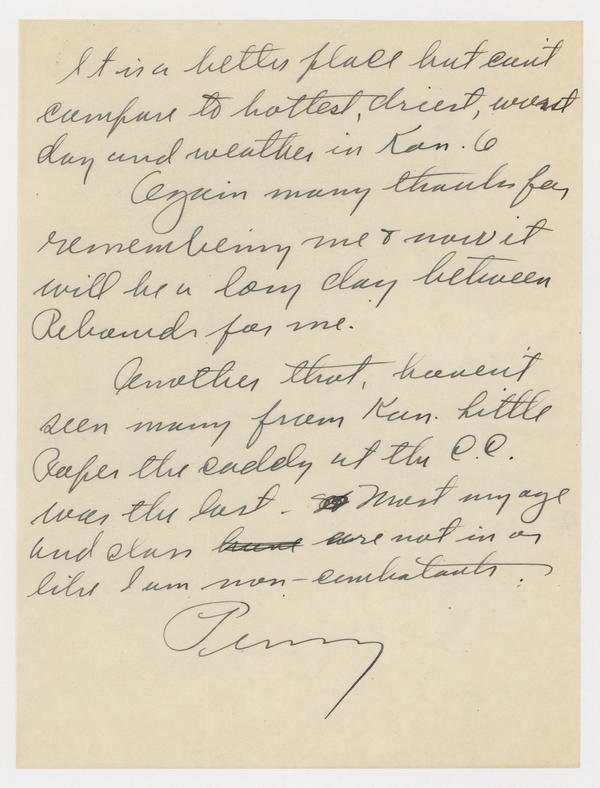 It is a better place but can't
compare to hottest, driest, worst
day and weather in Kan. 6
Again many thanks for
remembering me & now it
will be a long day between
Rebounds for me.
Another that, haven't
seen many from Kan. Little
the caddy at the C.C.
was the last - Most my age
and class have are not in or
like I am non-combatants.
Penny